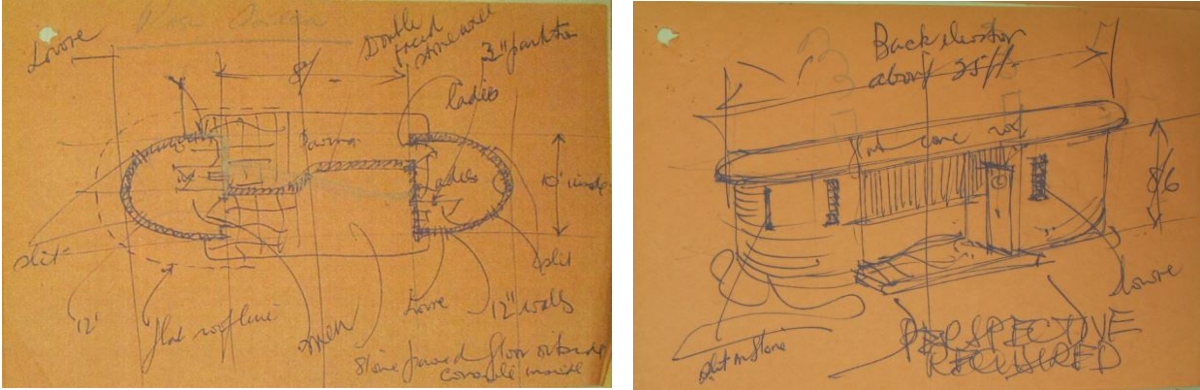 Rose Garden
Louvre
Double
faced
stone wall
3" partition
Ladies
8'
Ladies
10' inside
slit
slit
12'
flat roof line
Louvre
12" walls
stone paved floor outside
concrete inside
Back elevation
about 25 ft.
conc roof
8'6
louvre
slit in stone
PERSPECTIVE
REQUIRED